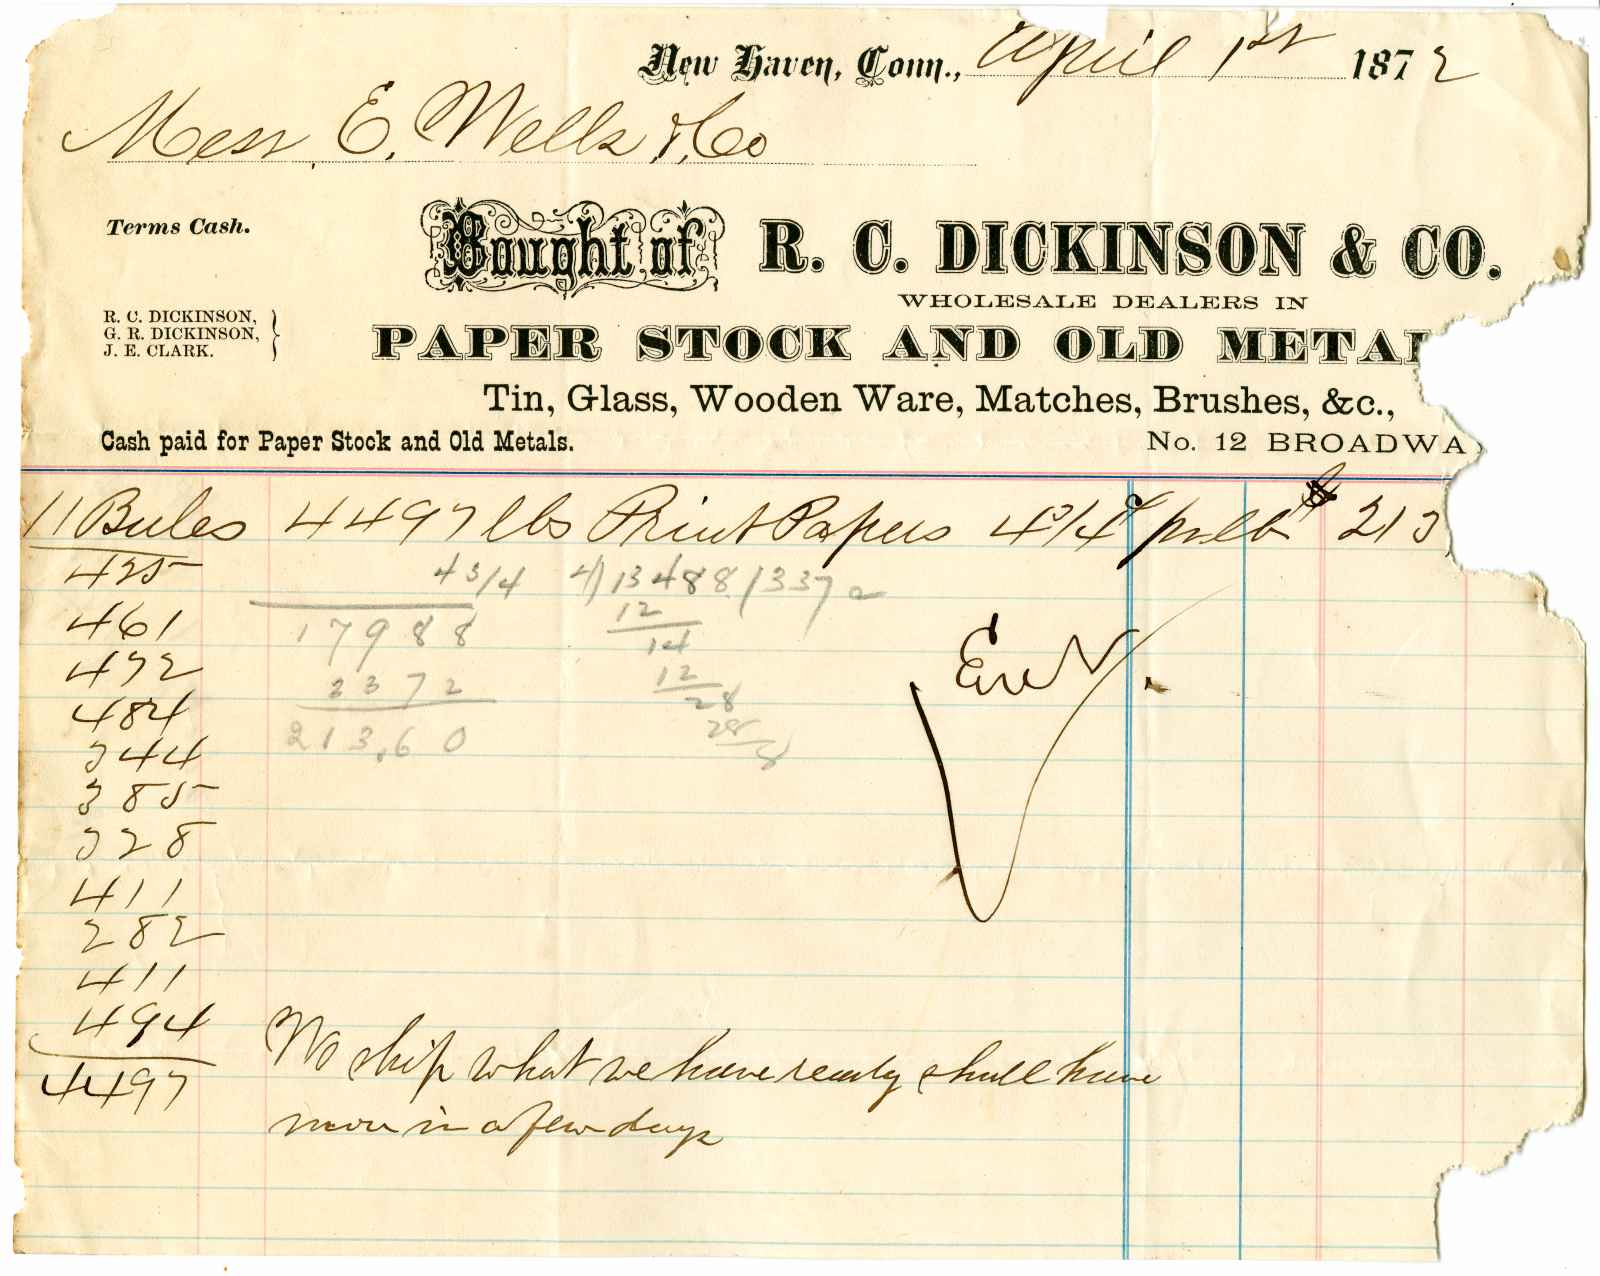 New Haven, Conn., April 1st 1872
Mess. E. Wells & Co
Terms Cash.
Bought of R. C. DICKINSON & CO.
WHOLESALE DEALERS IN
R. C. DICKINSON,
G. R. DICKINSON,
J. E. CLARK.
PAPER STOCK AND OLD METAL
Tin, Glass, Wooden Ware, Matches, Brushes, &c.,
Cash paid for Paper Stock and Old Metals.
No. 12 BROADWA
11 Bales 4497 lbs Print Papers 4 3/4 c pr lb $ 213
425
4 3/4 4)13488/3372
461
17988
12
14
472
2372
12
484
28
344
213.60
28
8
385
328
411
282
411
494
4497
We ship what we have ready shall have
more in a few days